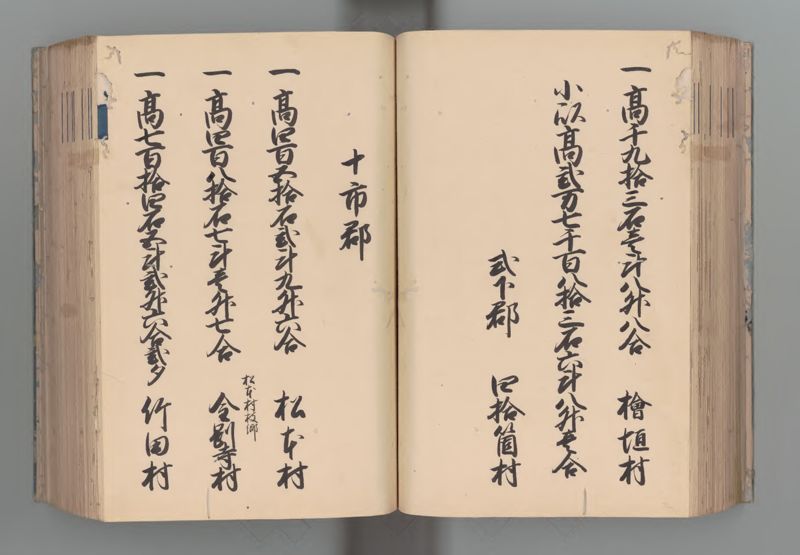 一高千九拾三石壱斗八升八合 檜垣村
小以高弐万七千百八拾三石六斗八升壱合
式下郡 四拾箇村
十市郡
一高四百五拾石弐斗九升六合 松本村
一高四百八拾石七斗壱升七合 松本村枝郷 令別寺村
一高七百拾四石五斗弐升六合弐夕 竹田村